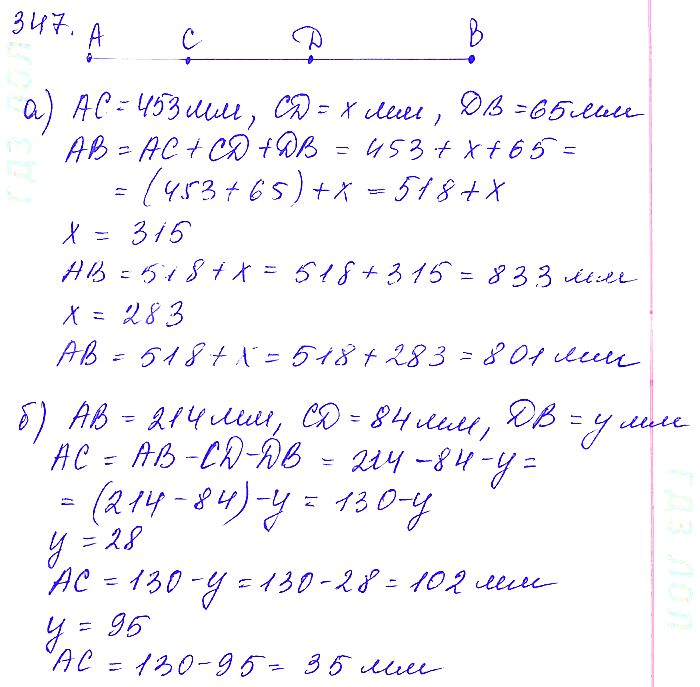 347.
A C D B
а) AC = 453 мм, CD = x мм, DB = 65 мм
AB = AC + CD + DB = 453 + x + 65 =
= (453 + 65) + x = 518 + x
x = 315
AB = 518 + x = 518 + 315 = 833 мм
x = 283
AB = 518 + x = 518 + 283 = 801 мм
б) AB = 214 мм, CD = 84 мм, DB = y мм
AC = AB - CD - DB = 214 - 84 - y =
= (214 - 84) - y = 130 - y
y = 28
AC = 130 - y = 130 - 28 = 102 мм
y = 95
AC = 130 - 95 = 35 мм
гдз лол
гдз лол